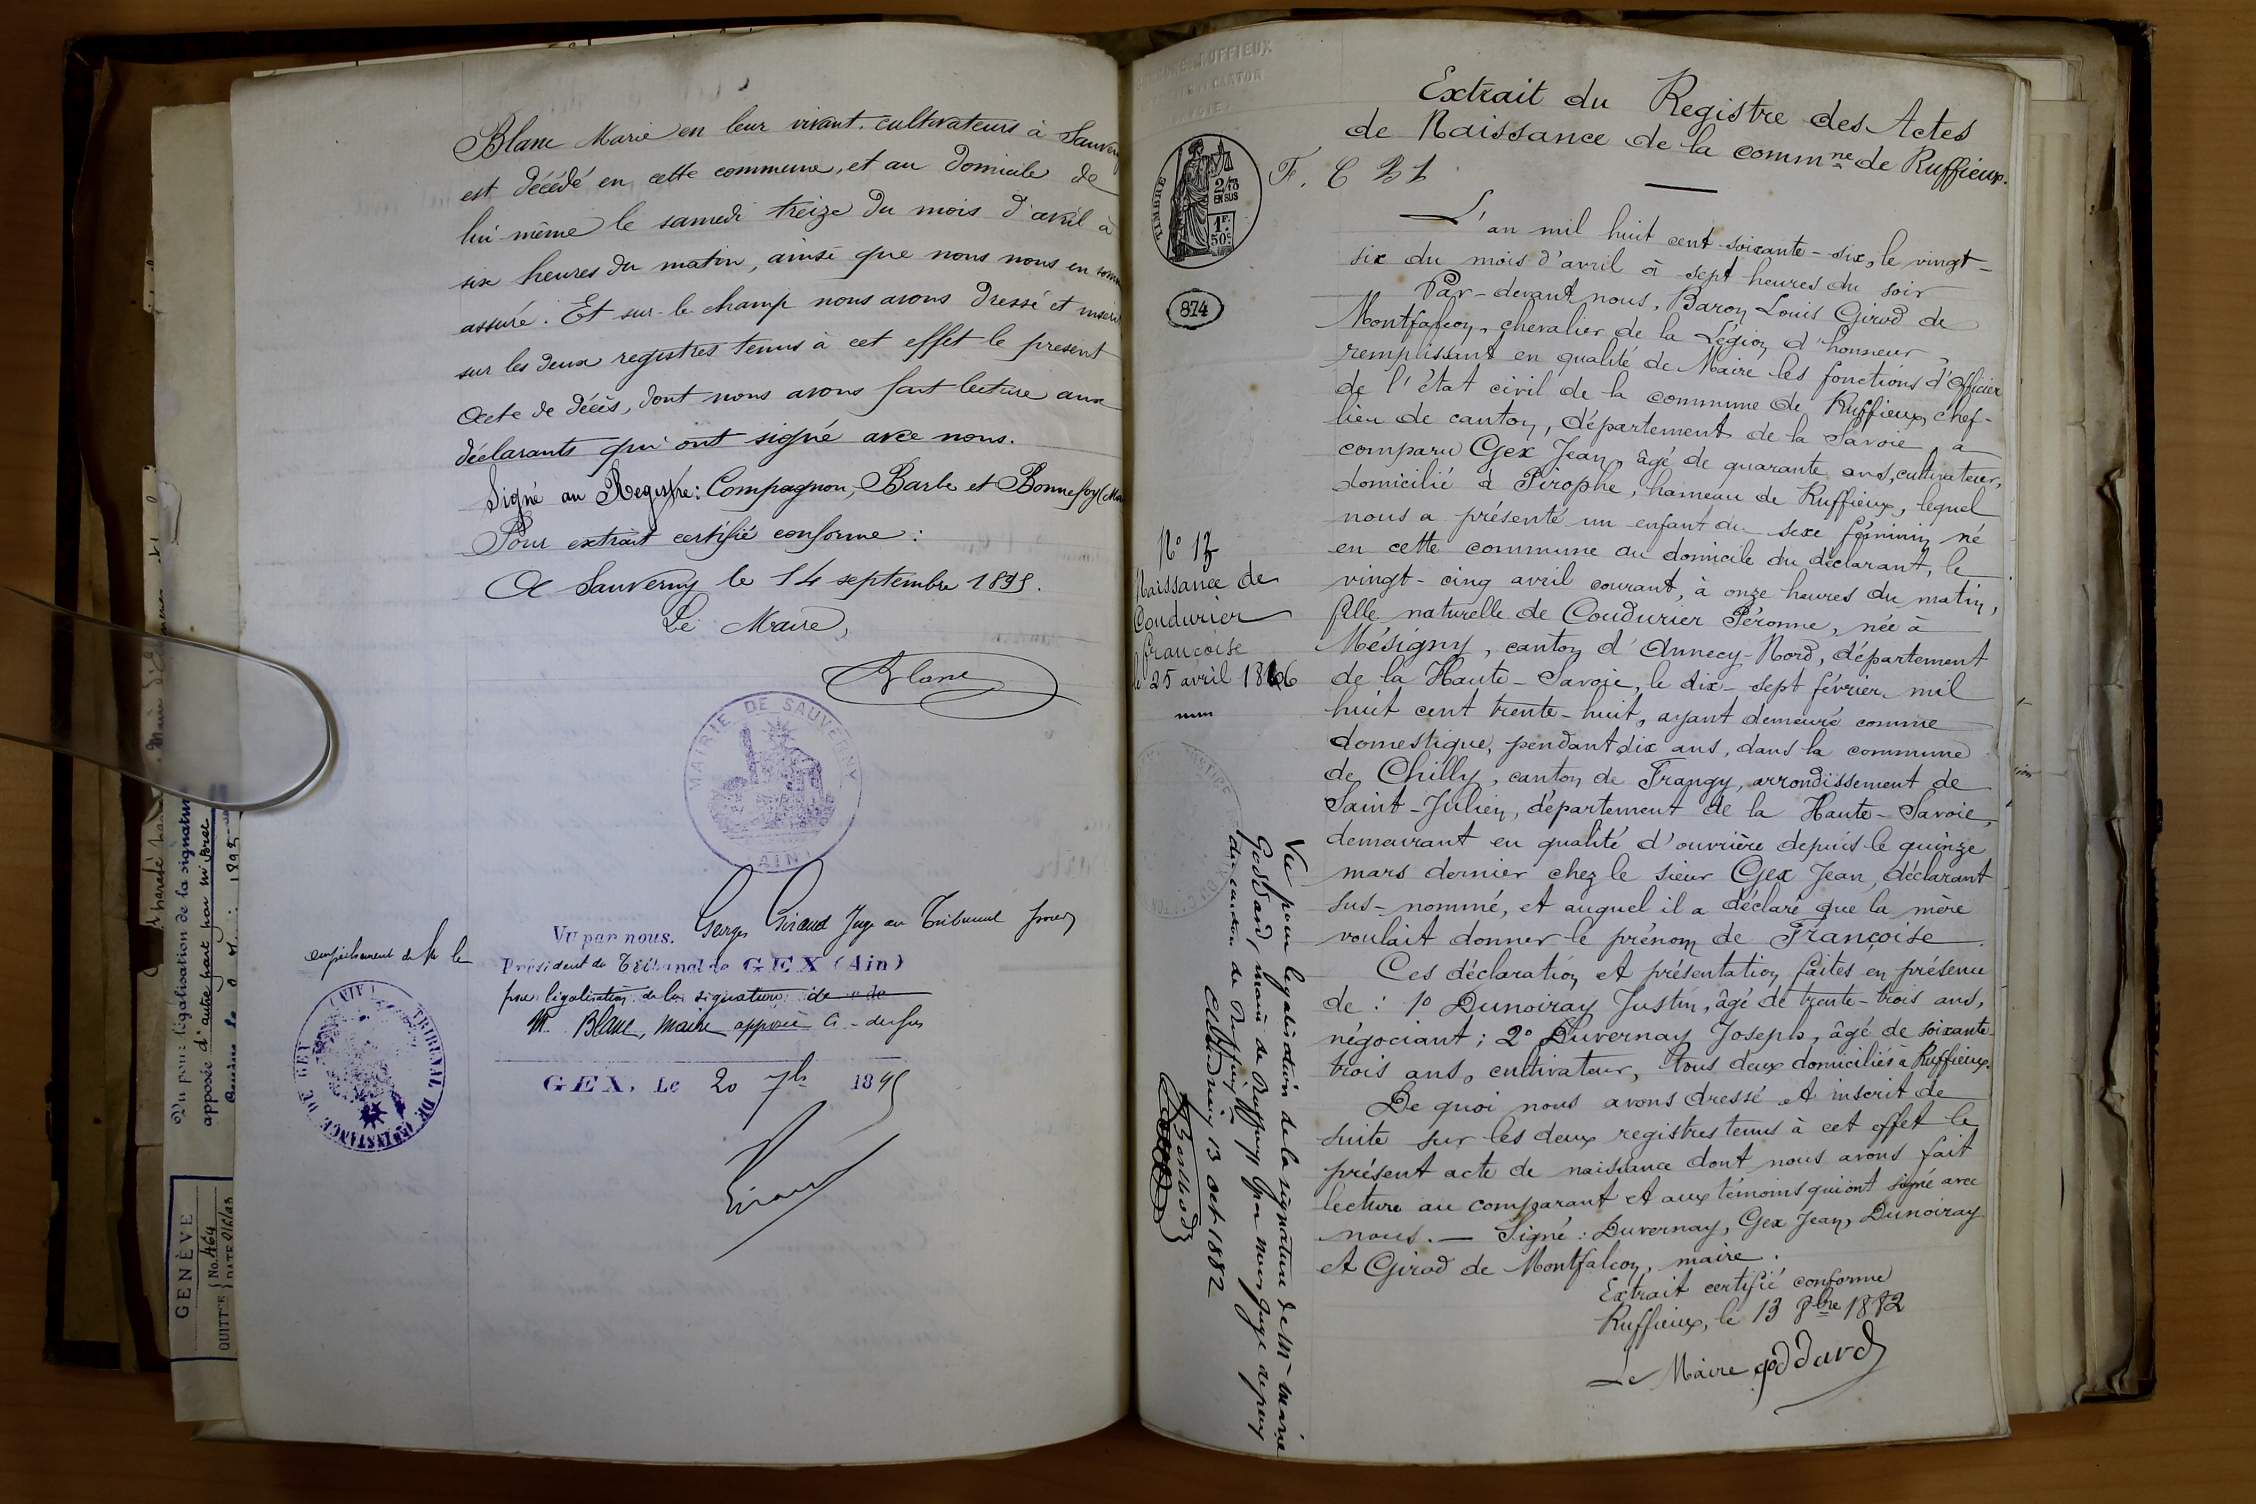 Blanc Marie en leur vivant cultivateurs à Sauver
est décédé en cette commune, et au domicile de
lui même le samedi treize du mois d'avril à
six heures du matin, ainsi que nous nous en som
assuré. Et sur-le-champ nous avons dressé et inscri
sur les deux registres tenus à cet effet le present
Acte de décès, dont nous avons fait lecture aux
déclarants qui ont signé avec nous.
Signé au Registre: Compagnon, Barbe et Bonnefoy (Ma
Pour extrait certifié conforme:
A Sauverny le 14 septembre 1895.
Le Maire,
Blanc
MAIRIE DE SAUVERNY
(AIN)
Georges Giraud Juge au Tribunal
Vu par nous.
empêchement de M le
Président du Tribunal de GEX (Ain)
pour légalisation de la signature de
M. Blanc, maire apposée ci-dessus
GEX, Le 20 7bre 1895
Giraud
TRIBUNAL DE 1re INSTANCE DE GEX (AIN)
Vu pour légalisation de la signature
apposée d'autre part par
1895
GENÈVE
No. 464
QUITT'E DATE
Extrait du Registre des Actes
de Naissance de la commne de Ruffieux.
TIMBRE
2/10
EN SUS
1F.
50c
F. C B L
874
L'an mil huit cent soixante-six, le vingt-
six du mois d'avril à sept heures du soir
Par-devant nous, Baron Louis Girod de
Montfalcon, chevalier de la Légion d'honneur,
remplissant en qualité de Maire les fonctions d'officier
de l'état civil de la commune de Ruffieux, chef-
lieu de canton, département de la Savoie, a
comparu Gex Jean, âgé de quarante ans, cultivateur,
domicilié à Pirophe, hameau de Ruffieux, lequel
nous a présenté un enfant du sexe féminin né
en cette commune au domicile du déclarant, le
vingt-cinq avril courant, à onze heures du matin,
fille naturelle de Coudurier Péronne, née à
Mésigny, canton d'Annecy-Nord, département
de la Haute-Savoie, le dix-sept février mil
huit cent trente-huit, ayant demeuré comme
domestique, pendant dix ans, dans la commune
de Chilly, canton de Frangy, arrondissement de
Saint-Julien, département de la Haute-Savoie,
demeurant en qualité d'ouvrière depuis le quinze
mars dernier chez le sieur Gex Jean, déclarant
sus-nommé, et auquel il a déclaré que la mère
voulait donner le prénom de Françoise.
Ces déclaration et présentation faites en présence
de: 1º Dunoiray Justin, âgé de trente-trois ans,
négociant; 2º Duvernay Joseph, âgé de soixante-
trois ans, cultivateur, tous deux domiciliés à Ruffieux.
De quoi nous avons dressé et inscrit de
suite sur les deux registres tenus à cet effet le
présent acte de naissance dont nous avons fait
lecture au comparant et aux témoins qui ont signé avec
nous. — Signé: Duvernay, Gex Jean, Dunoiray
et Girod de Montfalcon, maire.
Extrait certifié conforme
Ruffieux, le 13 8bre 1882
Le Maire goddard
Nº 13
Naissance de
Coudurier
françoise
le 25 avril 1866
Vu pour legalisation de la signature de Mr
Goddard, maire de Ruffieux par nous juge de paix
du canton de Ruffieux
13 oct. 1882